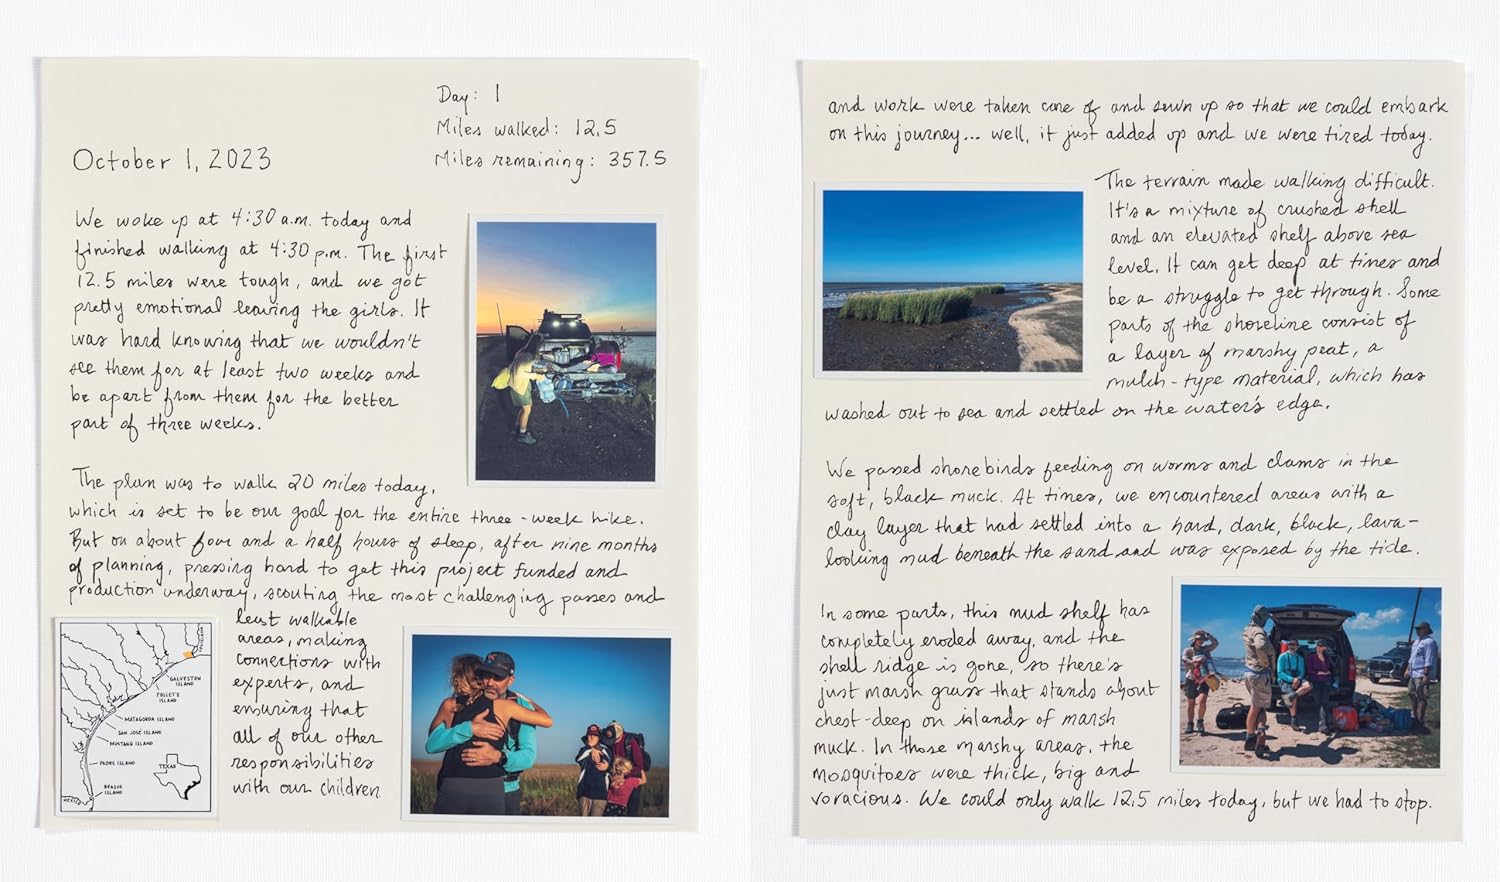 Day: 1
Miles walked: 12.5
October 1, 2023
Miles remaining: 357.5
We woke up at 4:30 a.m. today and
finished walking at 4:30 p.m. The first
12.5 miles were tough, and we got
pretty emotional leaving the girls. It
was hard knowing that we wouldn't
see them for at least two weeks and
be apart from them for the better
part of three weeks.
The plan was to walk 20 miles today,
which is set to be our goal for the entire three-week hike.
But on about four and a half hours of sleep, after nine months
of planning, pressing hard to get this project funded and
production underway, scouting the most challenging passes and
least walkable
areas, making
connections with
experts, and
ensuring that
all of our other
responsibilities
with our children
GALVESTON
ISLAND
FOLLET'S
ISLAND
MATAGORDA ISLAND
SAN JOSÉ ISLAND
MUSTANG ISLAND
PADRE ISLAND
TEXAS
BRAZOS
ISLAND
MEXICO
and work were taken care of and sewn up so that we could embark
on this journey... well, it just added up and we were tired today.
The terrain made walking difficult.
It's a mixture of crushed shell
and an elevated shelf above sea
level. It can get deep at times and
be a struggle to get through. Some
parts of the shoreline consist of
a layer of marshy peat, a
mulch-type material, which has
washed out to sea and settled on the water's edge.
We passed shorebirds feeding on worms and clams in the
soft, black muck. At times, we encountered areas with a
clay layer that had settled into a hard, dark, black, lava-
looking mud beneath the sand and was exposed by the tide.
In some parts, this mud shelf has
completely eroded away, and the
shell ridge is gone, so there's
just marsh grass that stands about
chest-deep on islands of marsh
muck. In those marshy areas, the
mosquitoes were thick, big and
voracious. We could only walk 12.5 miles today, but we had to stop.